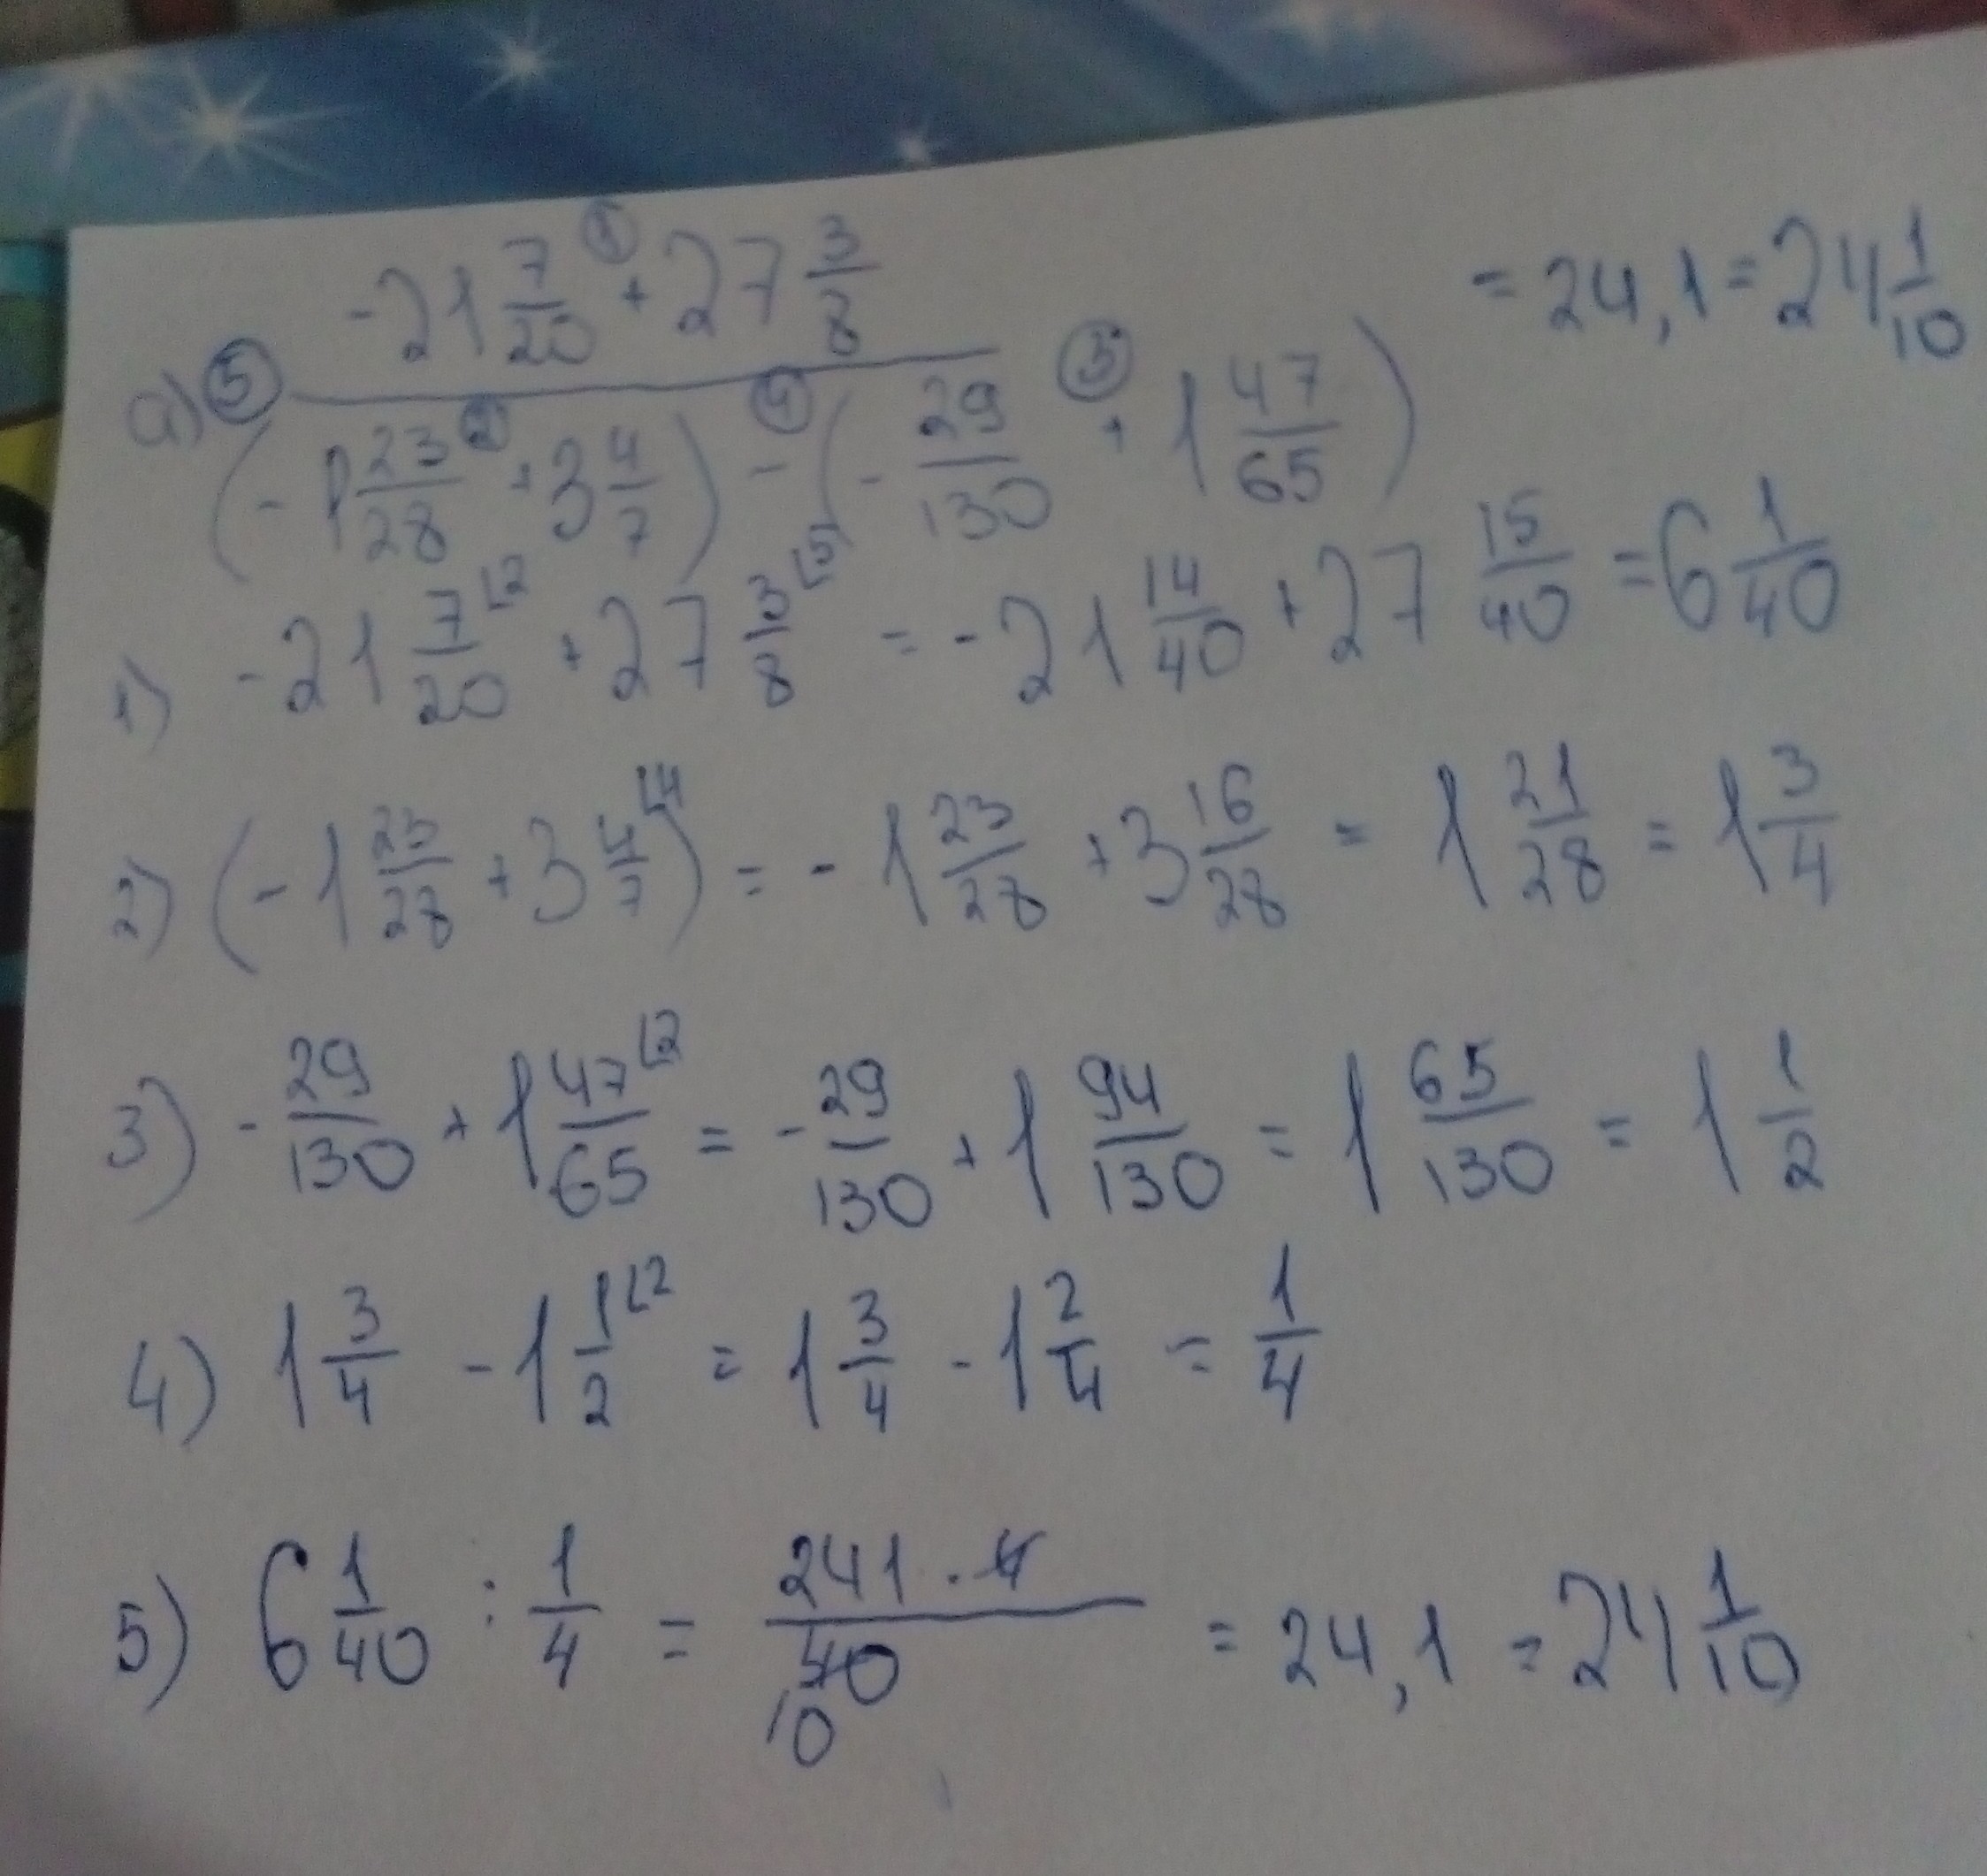 а) ⑤ (-21 7/20 ① + 27 3/8) / ((-1 23/28 ② + 3 4/7) ④ - (-29/130 ③ + 1 47/65)) = 24,1 = 24 1/10
1) -21 7/20 ⌊2 + 27 3/8 ⌊5 = -21 14/40 + 27 15/40 = 6 1/40
2) (-1 23/28 + 3 4/7 ⌊4) = -1 23/28 + 3 16/28 = 1 21/28 = 1 3/4
3) -29/130 + 1 47/65 ⌊2 = -29/130 + 1 94/130 = 1 65/130 = 1 1/2
4) 1 3/4 - 1 1/2 ⌊2 = 1 3/4 - 1 2/4 = 1/4
5) 6 1/40 : 1/4 = 241 · 4 / 40 10 = 24,1 = 24 1/10